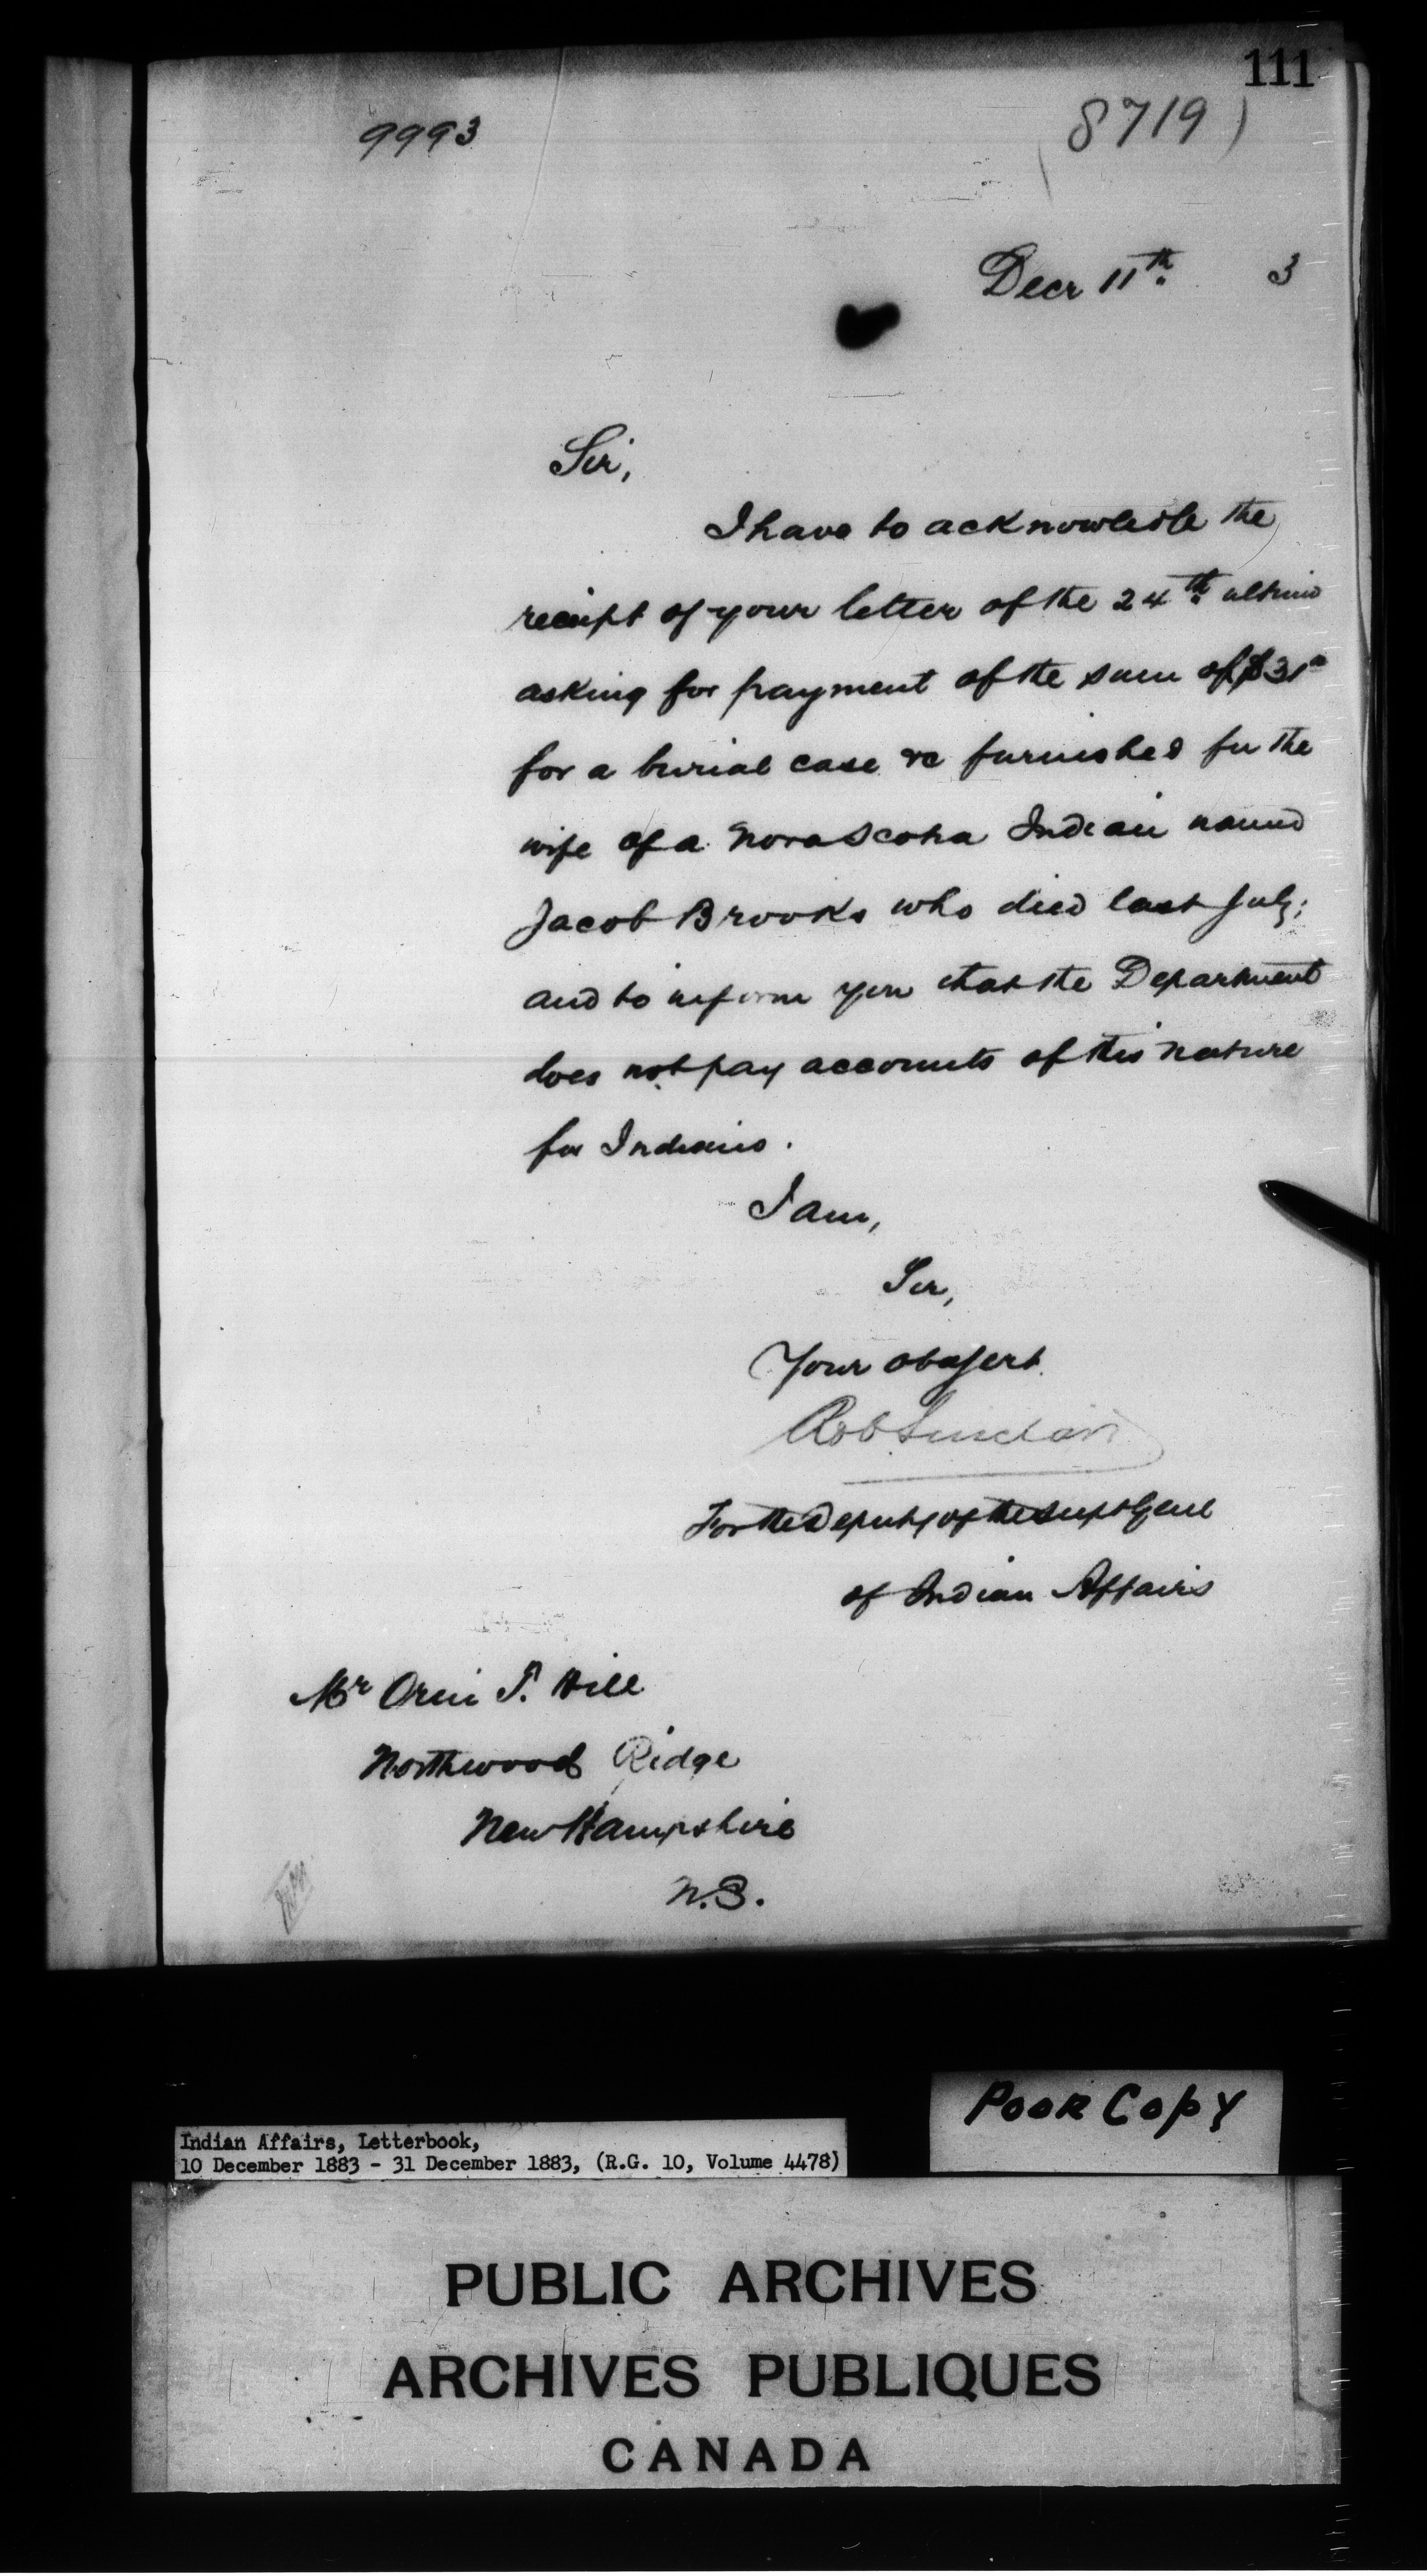 111
9993
8719
Decr 11th. 3
Sir,
I have to acknowledge the
receipt of your letter of the 24th ultimo
asking for payment of the sum of $31
for a burial case &c furnished for the
wife of a Nova Scotia Indian named
Jacob Brooks who died last July;
and to inform you that the Department
does not pay accounts of this nature
for Indians.
I am,
Sir,
Your obd Servt.
Rob Sinclair
For the Deputy of the Supt Genl
of Indian Affairs
Mr Orin T. Hill
Northwood Ridge
New Hampshire
Poor Copy
Indian Affairs, Letterbook,
10 December 1883 - 31 December 1883, (R.G. 10, Volume 4478)
PUBLIC ARCHIVES
ARCHIVES PUBLIQUES
CANADA